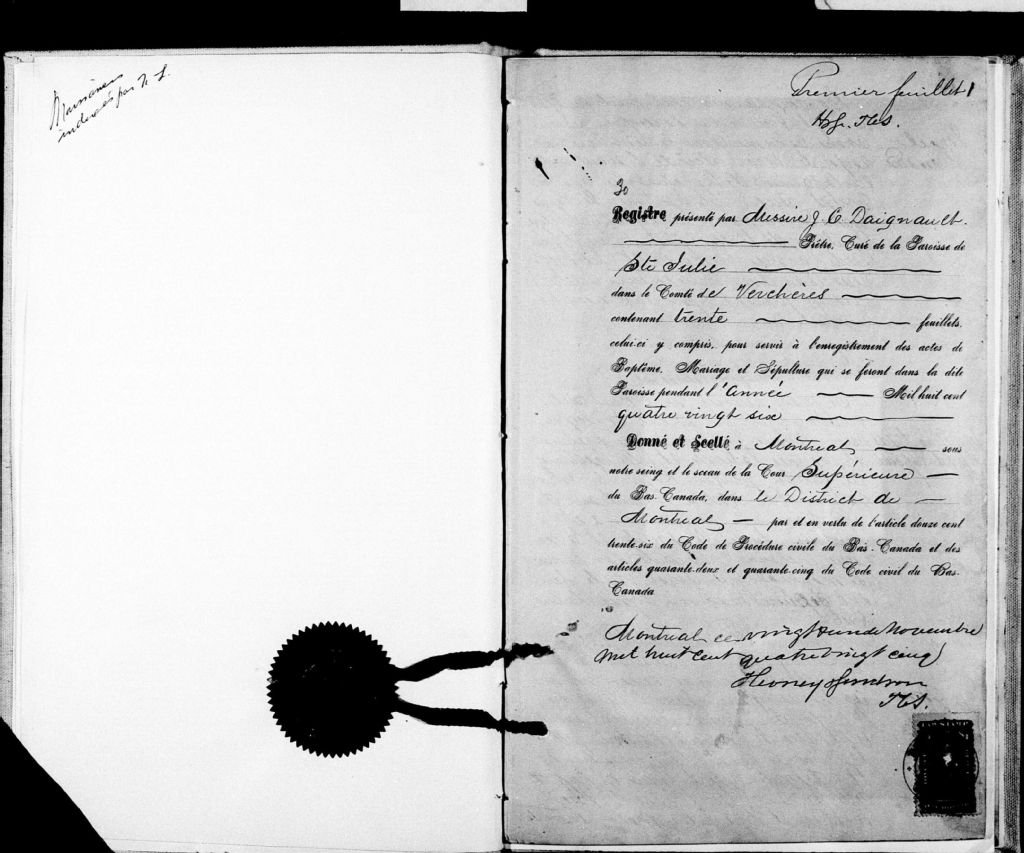 indexés par
Premier feuillet 1
30
Registre présenté par Messire J. C. Daignault.
Prêtre, Curé de la Paroisse de
Ste Julie
dans le Comté de Verchères
contenant trente feuillets,
celui-ci y compris, pour servir à l'enregistrement des actes de
Baptême, Mariage et Sépulture qui se feront dans la dite
Paroisse pendant l'Année Mil huit cent
quatre vingt six
Donné et Scellé à Montreal sous
notre seing et le sceau de la Cour Supérieure
du Bas-Canada, dans le District de
Montreal par et en vertu de l'article douze cent
trente-six du Code de Procédure civile du Bas-Canada et des
articles quarante-deux et quarante-cinq du Code civil du Bas-
Canada
Montreal ce vingt un de Novembre
mil huit cent quatre vingt cinq